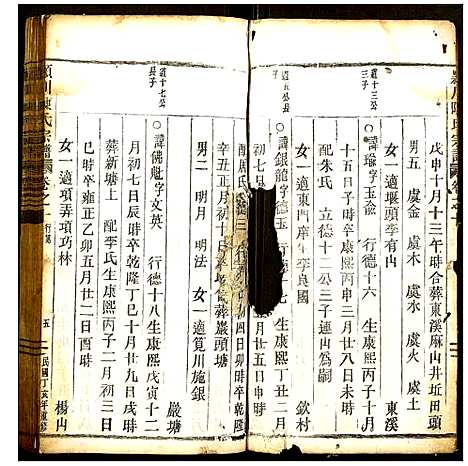 潁川陳氏宗譜
戊申十月十三午時合葬東溪麻山井近田頭
男五 虞金 虞木 虞水 虞火 虞土
女一適堰頭李有内 東溪
達十三公三子
諱瑜字玉 行德十六 生康熙丙子十月
十五日子時卒康熙丙申三月廿八日未時
配朱氏 立德十二公三子連山為嗣
女一適東門内庠生李良國 欽村
公長子
諱銀龍字德玉 行德十七 生康熙丁丑二月
初七
配周氏 四日卯時卒乾隆
辛丑正月初十日 葬巖頭塘
男二 明月 明法 女一適筧川施銀
達十七公長子 巖塘
諱佛魁字文英 行德十八生康熙戊寅十二
月初七日辰時卒乾隆丁巳十月廿九日戌時
葬新塘上 配李氏生康熙丙子二月初三日
巳時卒雍正乙卯五月廿二日酉時
女一適項弄項巧林 楊山
潁川陳氏宗譜 卷之一 行第 五 民國丁亥年重修